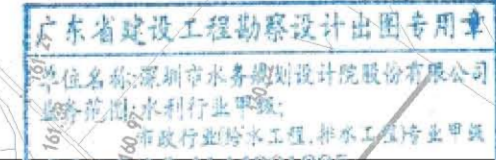 广东省建设工程勘察设计出图专用章
单位名称:深圳市水务规划设计院股份有限公司
业务范围:水利行业甲级;
市政行业(给水工程,排水工程)专业甲级
161.29
161.33
160.97